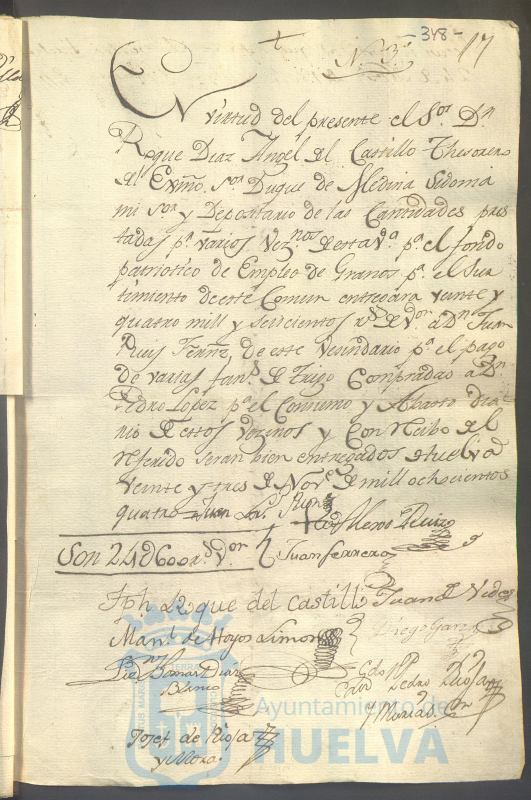 -348-
17
N. 3º
En virtud del presente el Sor. Dn
Roque Diaz Angel del Castillo Thesorero
del Exmo. Sor Duque de Medina Sidonia
mi Sor y Depositario de las Cantidades pres
tadas pª varios Vez.nos de esta Vª pª el fondo
patriotico de Empleo de Granos pª el Sur
timiento de este Comun entregara veinte y
quatro mill y seiscientos rs de Von a Dn Juan
Ruis de este Vesindario pª el pago
de varias fans de Trigo Compradas a Dn
Pedro Lopez pª el Consumo y Abasto Dia
rio de estos Vezinos y Con Recibo del
Referido seran bien entregados Huelva
Veinte y tres de Nove de mill ochocientos
quatro
Son 24d600 rs Von
Juan Ferrero
Jph Roque del Castillo
Juan de Vides
Manl de Hoyos Limon
Diego Garzon
Blanco
Pedro
Josef de Rioja
y Mora
Ayuntamiento de
HUELVA